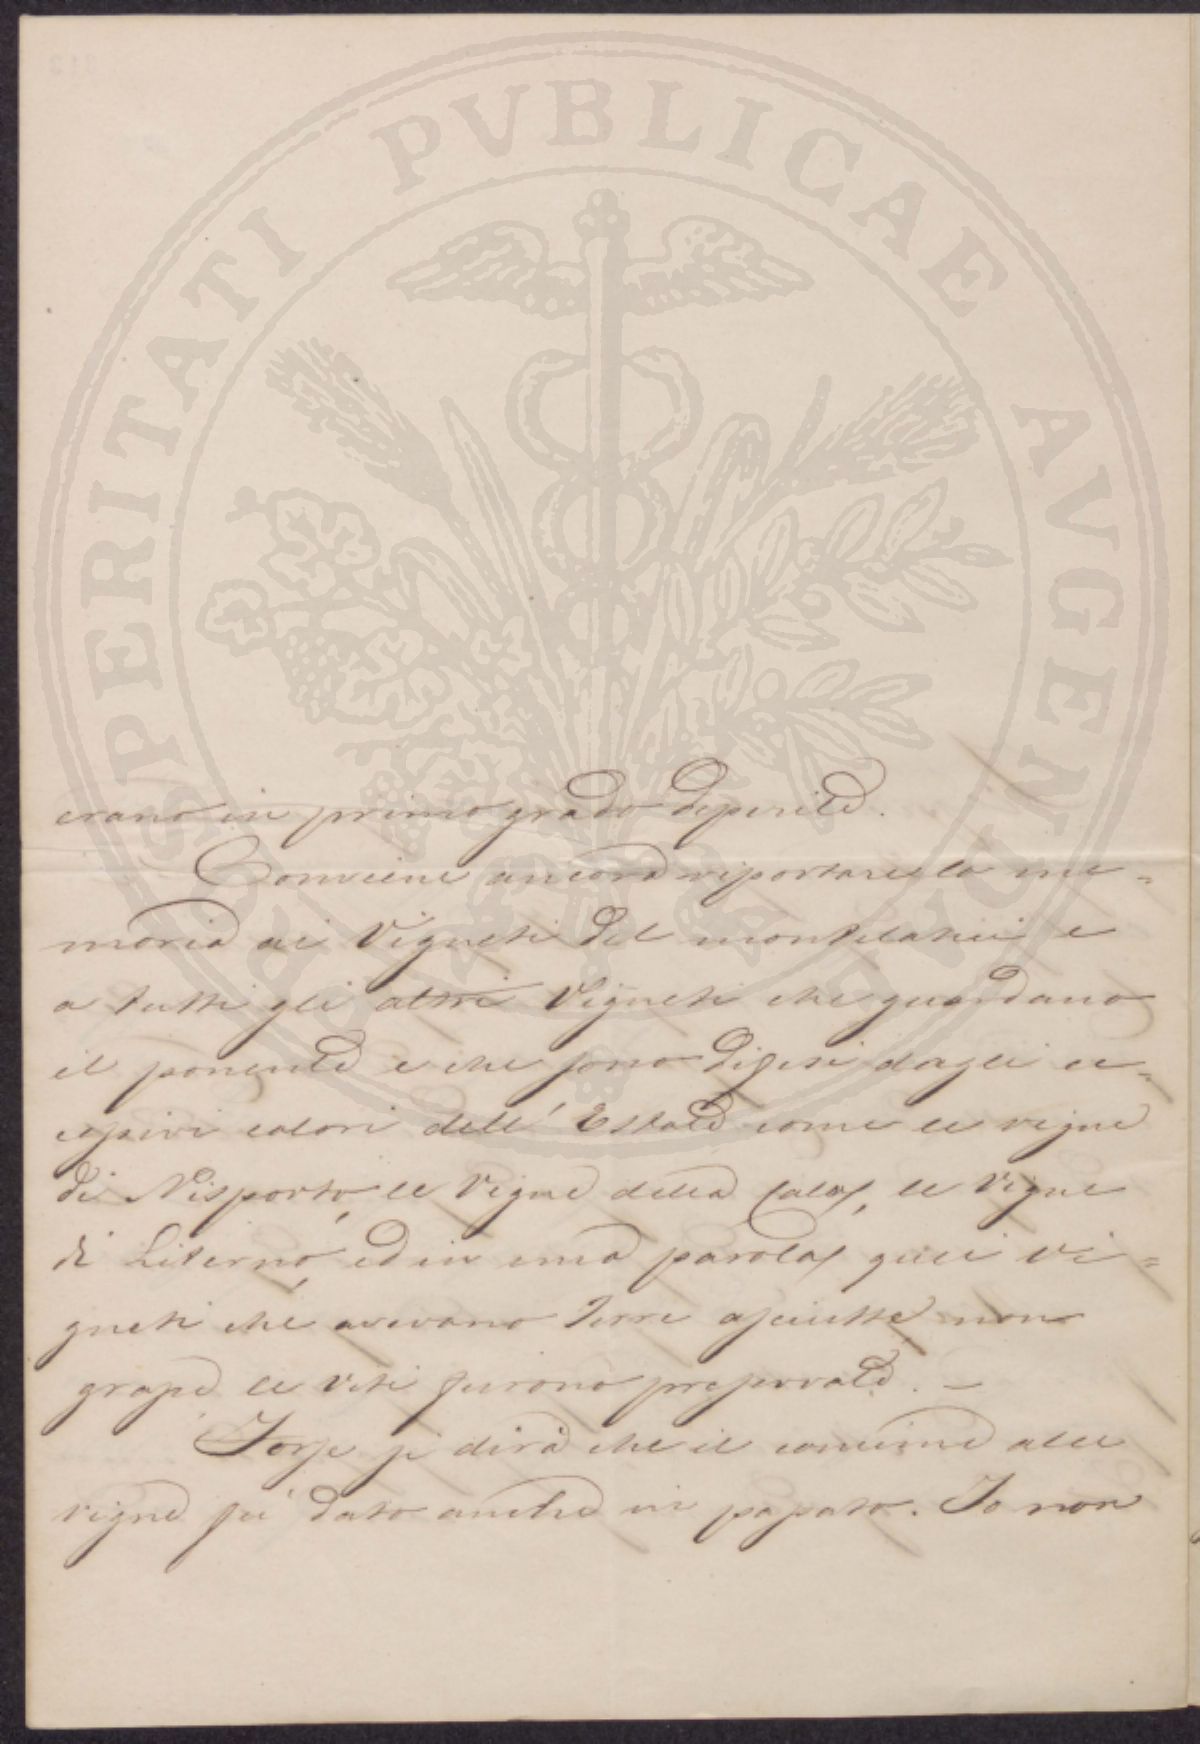 PROSPERITATI PVBLICAE AVGENDAE
erano in primo grado deperite.
Conviene ancora riportare la me=
moria ai Vigneti del
a tutti gli altri Vigneti che guardano
il ponente e che sono difesi dagli ec=
cessivi calori dell' Estate come le vigne
di Nisporto, le Vigne della Cala, le Vigne
di Literno, ed in una parola, quei vi=
gneti che avevano Terre asciutte non
grasse le viti furono preservate. —
Forse si dirà che il concime alle
vigne fù dato anche in passato. Io non